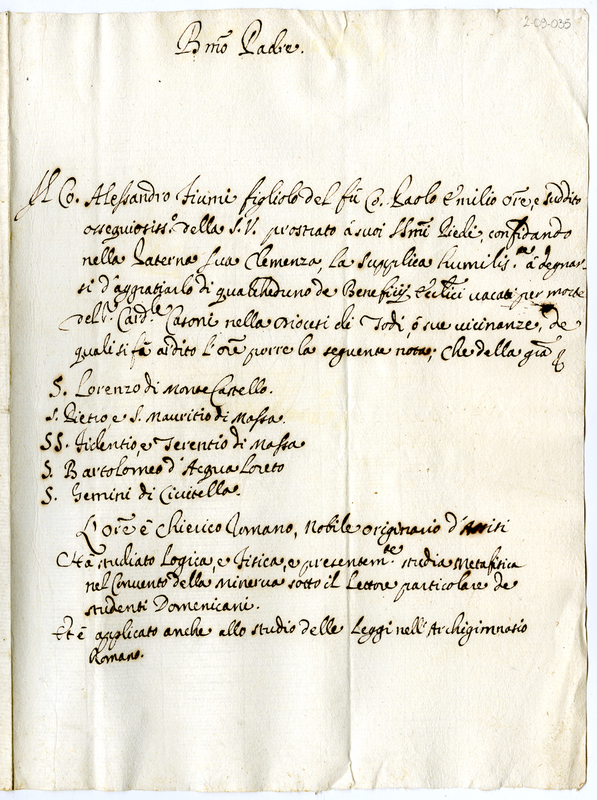 2-09-035
Bmo Padre.
Il Co. Alessandro Fiumi figliolo del fù Co. Paolo Emilio Ore, e suddito
ossequiosiss.o della S.V. prostrato à suoi SSmi Piedi, confidando
nella Paterna sua Clemenza, la supplica humilis.te à degnar-
si d'aggratiarlo di qualcheduno de Beneficij Eccl'ici vacati per morte
del S. Card.le Casoni nella Diocesi di Todi, ò sue vicinanze, de
quali si fà ardito l'Ore porre la seguente nota; Che della gra
S. Lorenzo di Monte Castello.
S. Pietro, e S. Mauritio di Massa.
SS. Fidentio, e Terentio di Massa
S. Bartolomeo d'Acqua Loreto
S. Gemini di Civitella.
L'Ore è Chierico Romano, Nobile originario d'Assisi
Hà studiato Logica, e Fisica, e presentem.te studia Metafisica
nel Convento della Minerva sotto il Lettore particolare de
studenti Domenicani.
Et è applicato anche allo studio delle Leggi nell'Archigimnasio
Romano.